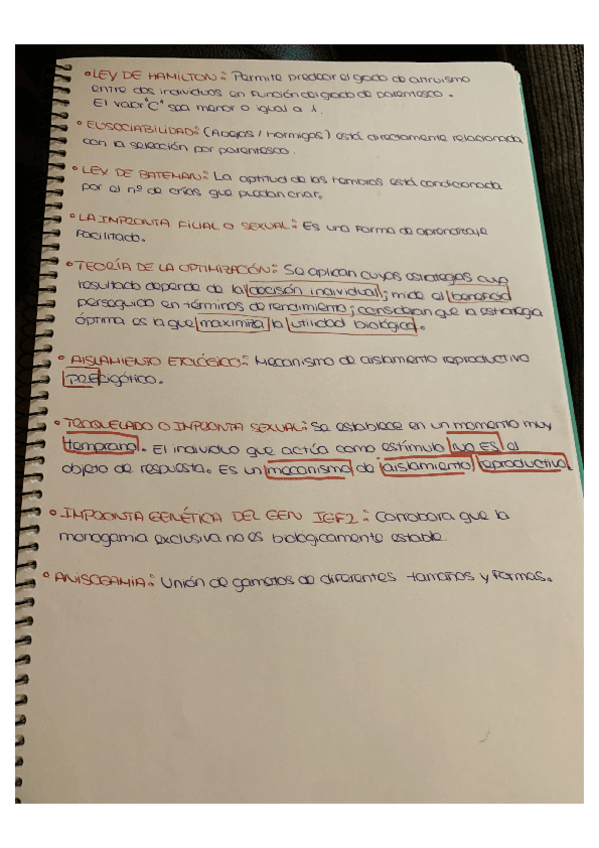 • LEY DE HAMILTON: Permite predecir el grado de altruismo
entre dos individuos en función del grado de parentesco.
El valor "C" sea menor o igual a 1.
• EUSOCIABILIDAD: (Abejas / Hormigas) está directamente relacionada
con la selección por parentesco.
• LEY DE BATEMAN: La aptitud de las hembras está condicionada
por el nº de crías que puedan criar.
• LA IMPRONTA FILIAL O SEXUAL: Es una forma de aprendizaje
facilitado.
• TEORÍA DE LA OPTIMIZACIÓN: Se aplican cuyas estrategias cuyo
resultado depende de la decisión individual; mide el beneficio
perseguido en términos de rendimiento; consideran que la estrategia
óptima es la que maximiza la utilidad biológica.
• AISLAMIENTO ETOLÓGICO: Mecanismo de aislamiento reproductivo
precigótico.
• TROQUELADO O IMPRONTA SEXUAL: Se establece en un momento muy
temprano. El individuo que actúa como estímulo NO ES el
objeto de respuesta. Es un mecanismo de aislamiento reproductivo.
• IMPRONTA GENÉTICA DEL GEN IGF2: Corrobora que la
monogamia exclusiva no es biológicamente estable.
• ANISOGAMIA: Unión de gametos de diferentes tamaños y formas.